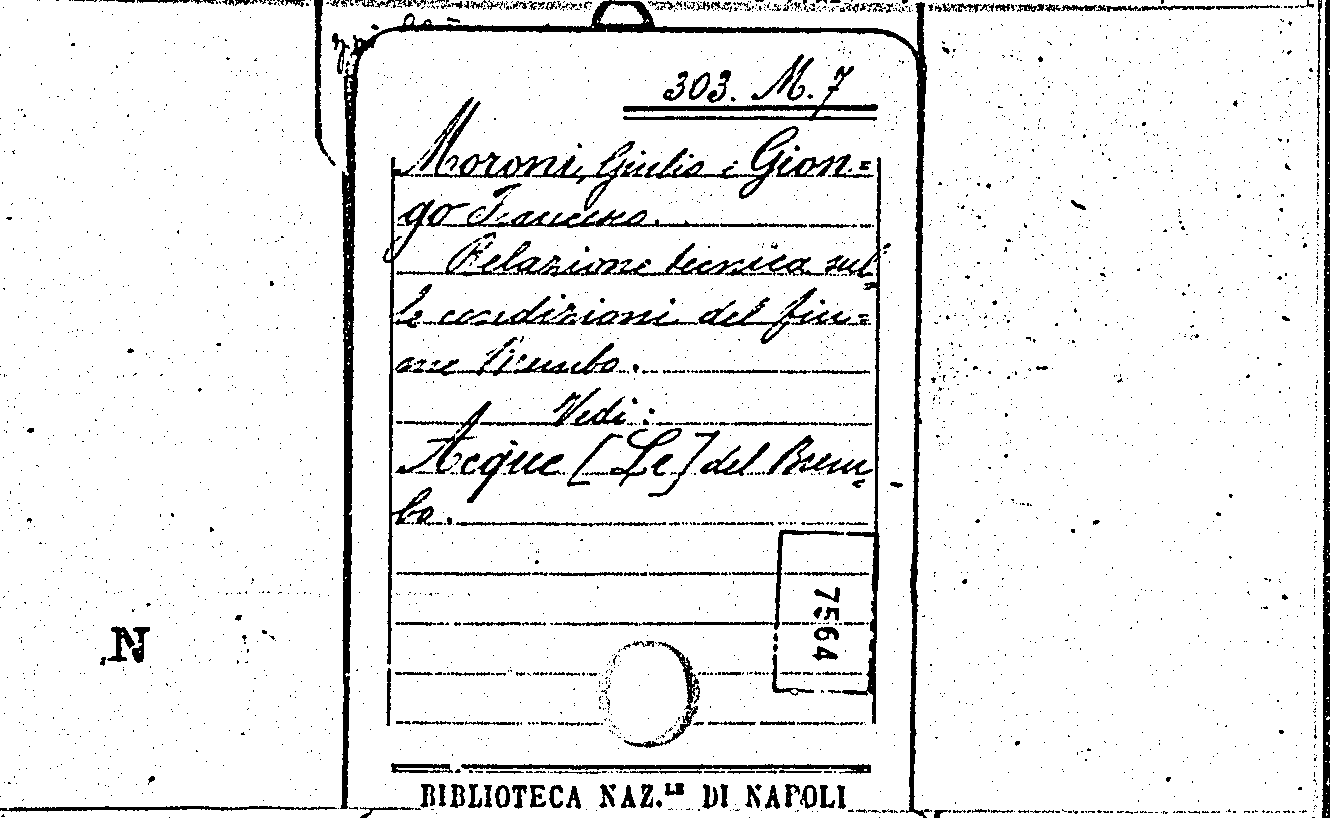 303. M. 7
Moroni, Giulio e Gion=
go Francesco.
Relazione tecnica sul=
le condizioni del fiu=
me Brembo.
Vedi:
Acque [Le] del Brem=
bo.
7564
N
BIBLIOTECA NAZ.LE DI NAPOLI